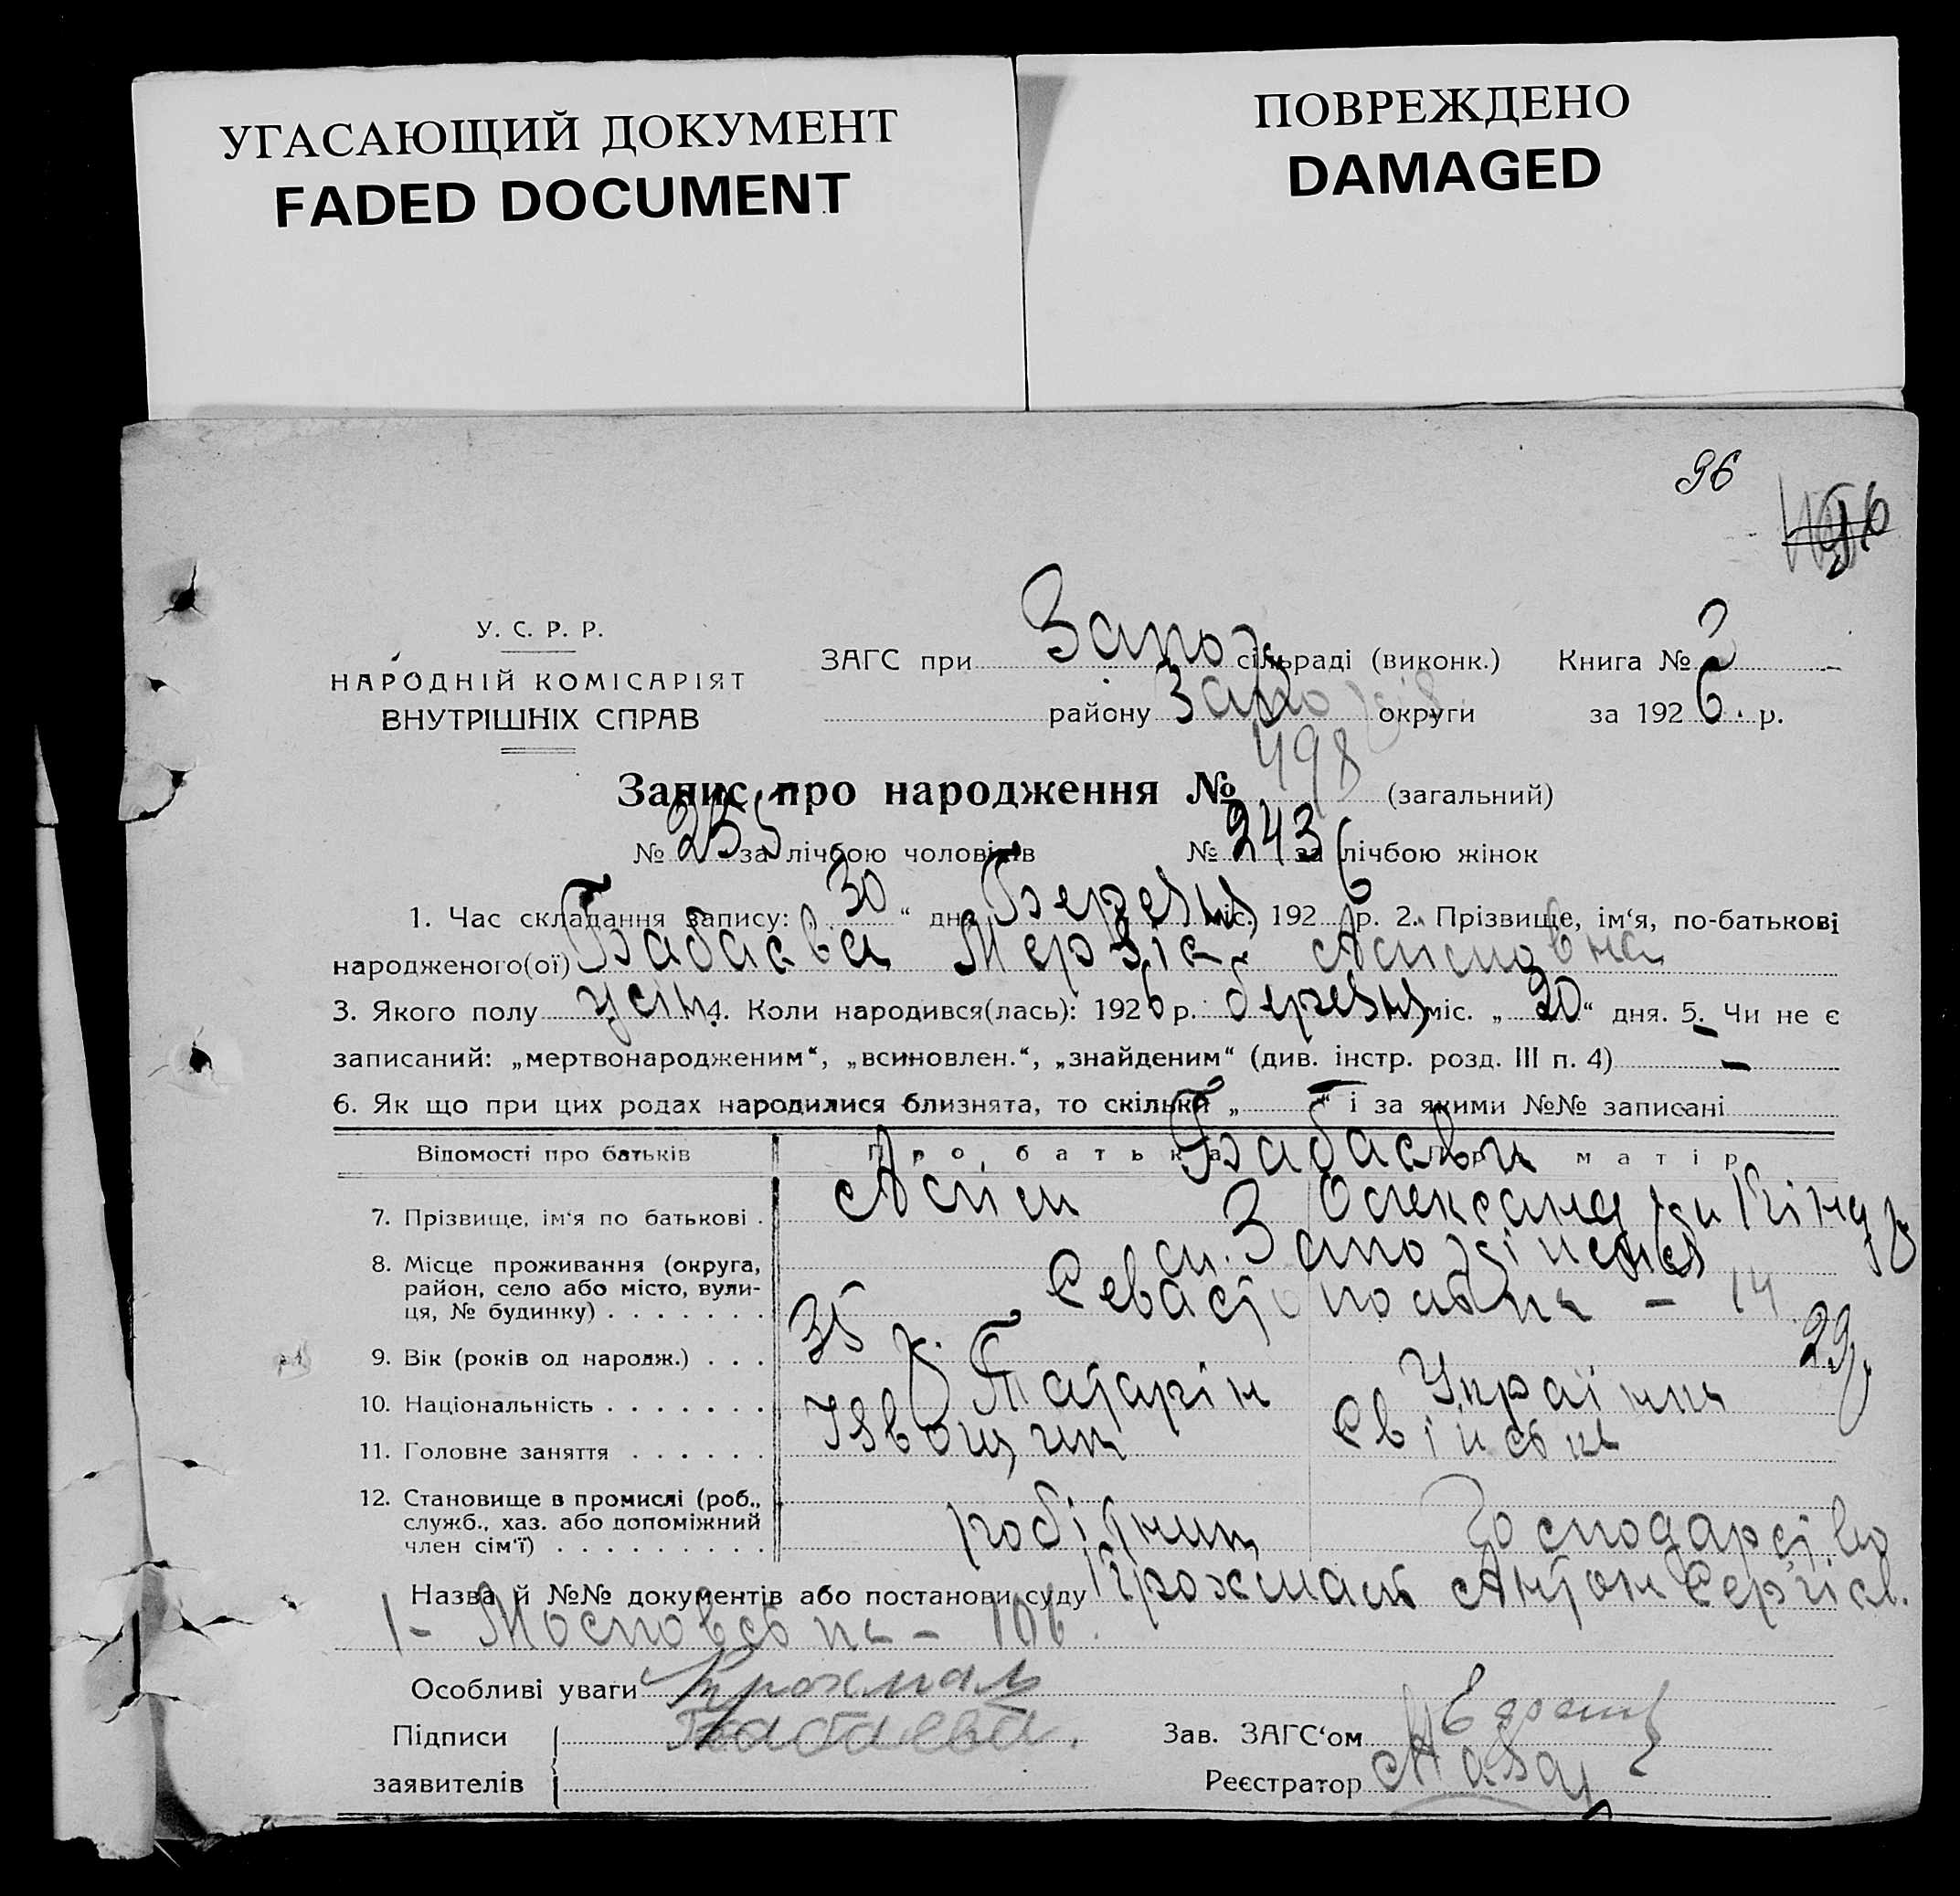 УГАСАЮЩИЙ ДОКУМЕНТ
FADED DOCUMENT
ПОВРЕЖДЕНО
DAMAGED
96
У. С. Р. Р.
НАРОДНІЙ КОМІСАРІЯТ
ВНУТРІШНІХ СПРАВ
ЗАГС при Запож сільраді (виконк.) Книга № 2
району Запо округи за 1926 р.
Запис про народження № 498 (загальний)
№ 255 за лічбою чоловіків № 243 за лічбою жінок
1. Час складання запису: 30 “ дня Березня міс. 1926 р. 2. Прізвище, ім‘я, по-батькові
народженого(ої) Бабаєва
3. Якого полу 4. Коли народився(лась): 1926 р. березня міс. „ 20 “ дня. 5. Чи не є
записаний: „мертвонародженим“, „всиновлен.“, „знайденим“ (див. інстр. розд. III п. 4) —
6. Як що при цих родах народилися близнята, то скільки „ “ і за якими №№ записані
Відомості про батьків Про батька Про матір
Бабаєви
7. Прізвище, ім‘я по батькові . Олександра
8. Місце проживання (округа, район, село або місто, вулиця, № будинку) . . . . . . . м. Запоріжжя
Севастопольська - 14
9. Вік (років од народж.) . . . 35 29
10. Національність . . . . . . . Татарін Українка
11. Головне заняття . . . . . . Ізвощик
12. Становище в промислі (роб., служб., хаз. або допоміжний член сім‘ї) . . . . . . . . . робітник господарство
Назва й №№ документів або постанови суду Крохмаль Антон Сергієв.
1 - Московська - 106.
Особливі уваги Крохмаль
Підписи заявителів Бабаева.
Зав. ЗАГС‘ом
Реєстратор